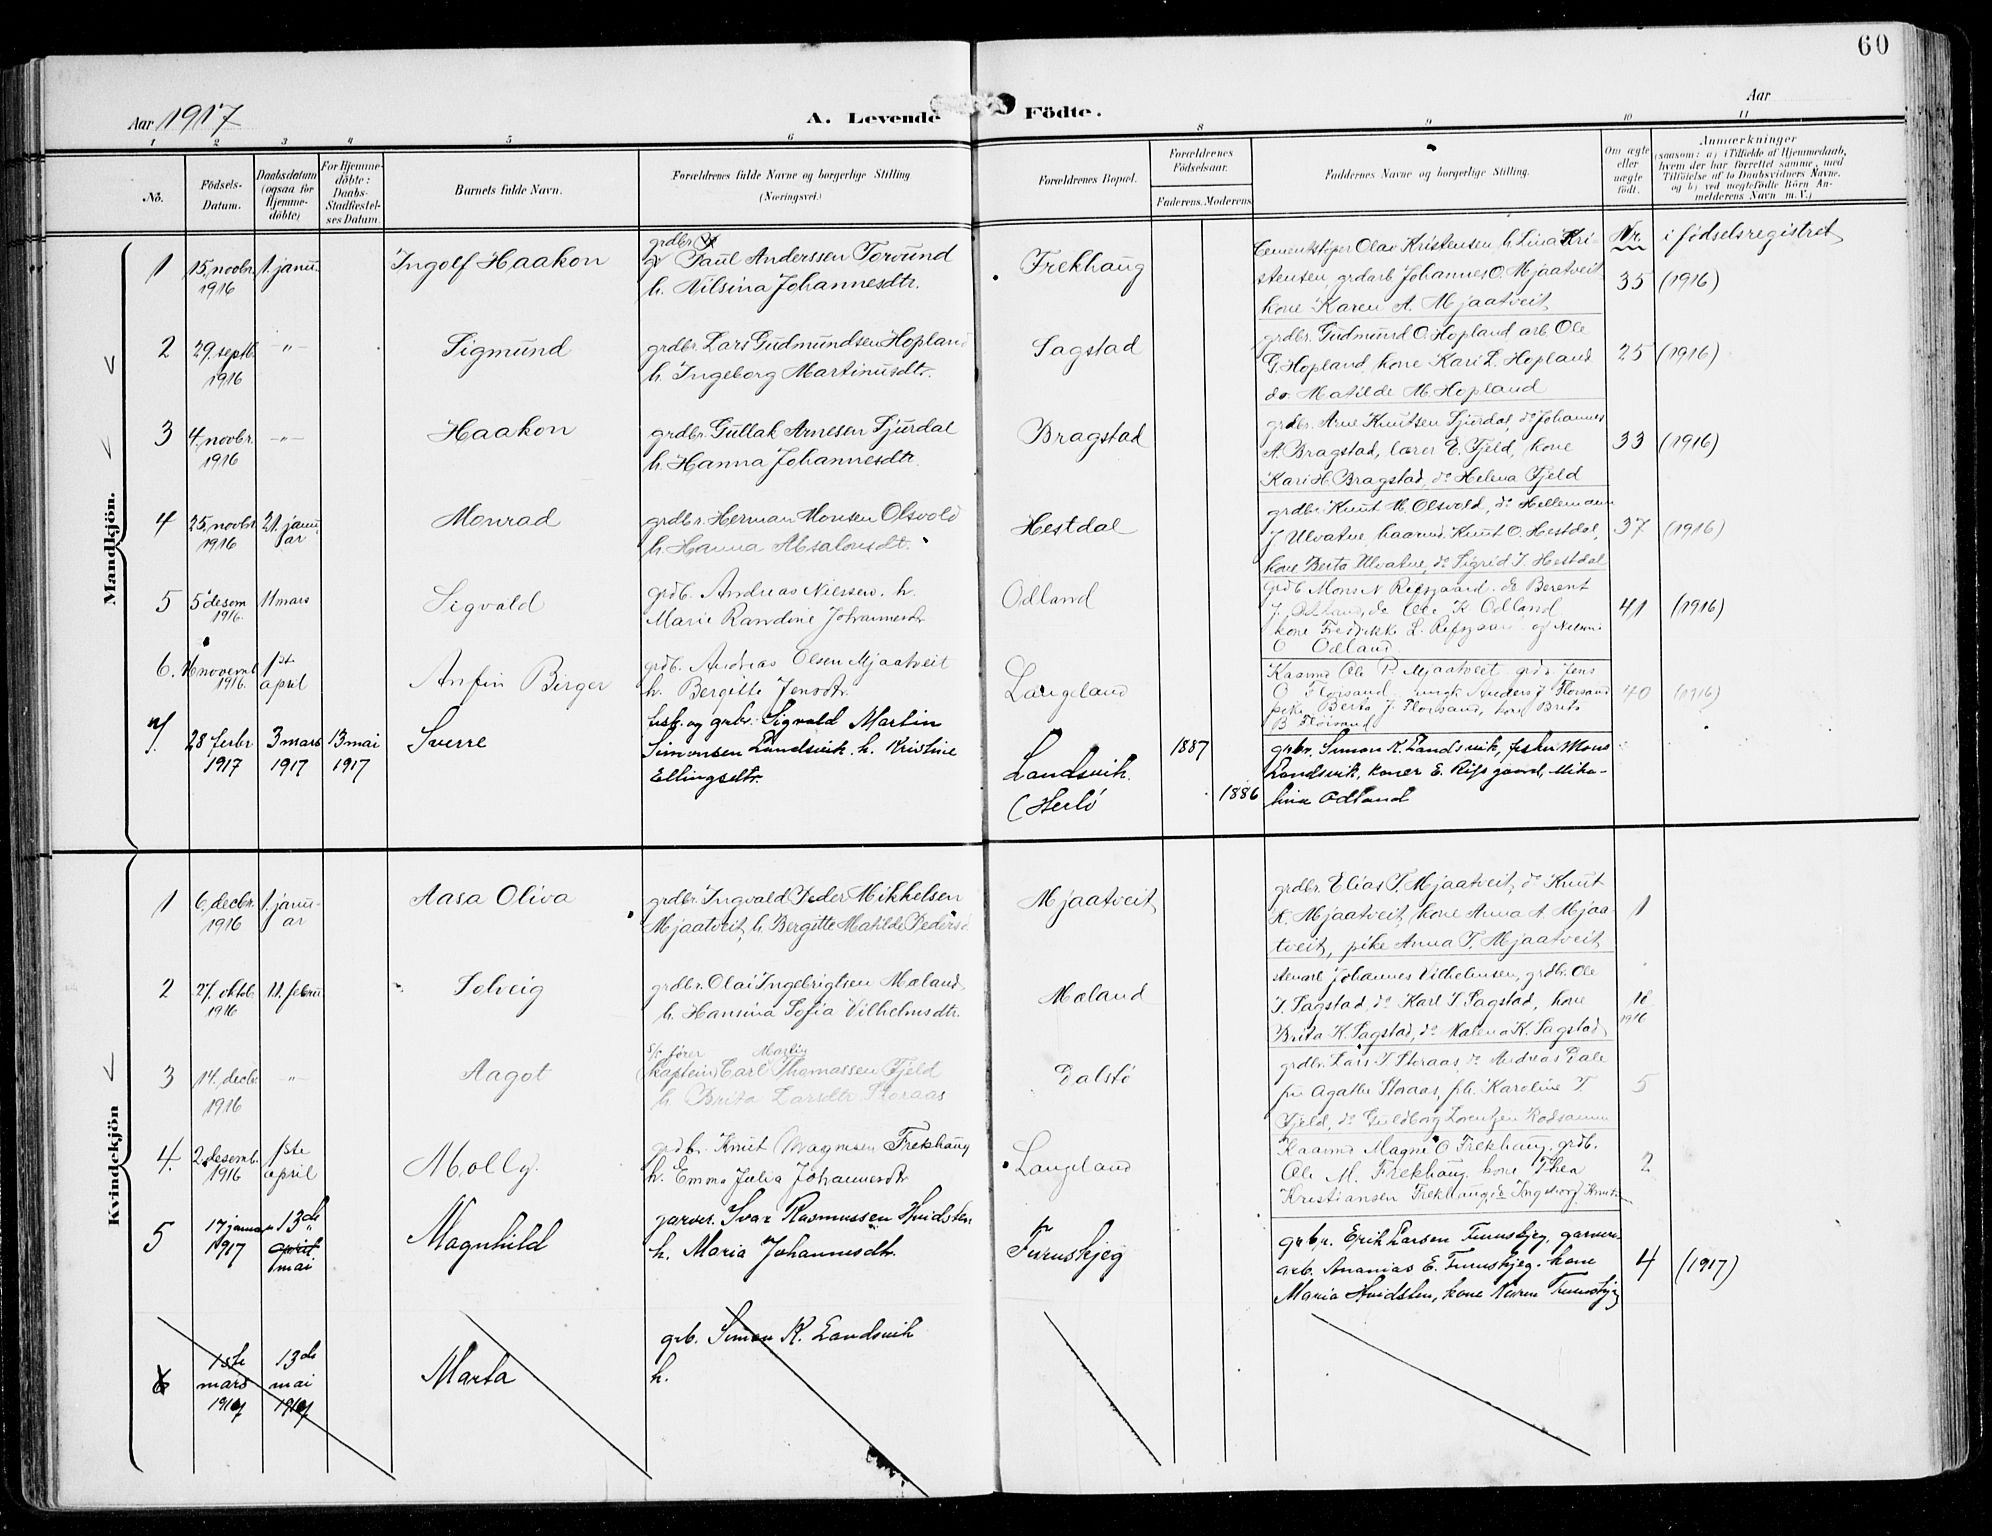 60
Aar 1917
A. Levende Födte.
Aar
1 2 3 4 5 6 8 9 10 11
No.
Födsels-Datum.
Daabsdatum (ogsaa for Hjemme-döbte)
For Hjemme-döbte: Daabs-Stadfæstel-ses Datum.
Barnets fulde Navn.
Forældrenes fulde Navne og borgerlige Stilling
(Næringsvei.)
Forældrenes Bopæl.
Forældrenes Födselsaar.
Faderens. Moderens.
Faddernes Navne og borgerlige Stilling.
Om ægte eller uægte födt.
Anmærkninger
(saasom: a) i Tilfælde af Hjemmedaab,
hvem der har forrettet samme, med
Tilföielse af to Daabsvidners Navne,
og b) ved uægtefödte Börn An-
melderens Navn m. V.)
Nr. i födselsregistret
Mandkjön.
1
15. novbr. 1916
1. janu.
Ingolf Haakon
grdbr.
Paul Anderssen Torvund
h. Nilsina Johannesdtr.
Frekhaug
Cementstöper Olav Kristensen, h. Lina Kri-
stensen, grdarb Johannes O. Mjaatveit
kone Karen A. Mjaatveit
35 (1916)
2
29. septb. 1916
-"-
Sigmund
grdbr. Lars Gudmundsen Hopland
h. Ingeborg Martinusdtr.
Sagstad
grdbr. Gudmund O. Hopland arb. Ole
G. Hopland, kone Kari L. Hopland
do. Matilde M. Hopland
25 (1916)
3
4. novbr. 1916
-"-
Haakon
grdbr. Gullak Arnesen Sjurdal
h. Hanna Johannesdtr.
Bragstad
grdbr. Arne Knutsen Sjurdal, do Johannes
A. Bragstad, lærer E. Fjeld, kone
Kari H. Bragstad, do Helena Fjeld
33 (1916)
4
25. novbr. 1916
21. janu ar
Monrad
grdbr. Herman Monsen Olsvold
h. Hanna Absalonsdt.
Hestdal
grdbr. Knut M. Olsvold, do Hellemann
J Ulvatne, kaarmd. Knut O. Hestdal,
kone Berta Ulvatne, do Sigrid J. Hestdal
37 (1916)
5
5 desem 1916.
11 mars
Sigvald
grdb. Andreas Nilssen. h.
Marie Randine Johannesdr
Odland
grdb. Mons N Rifsgaard. do Berent
J. Odland, do Ole K Odland
kone Fredrikke L. Rifsgaard og
O Odland
41 (1916)
6.
16 novemb 1916.
1ste april
Anfin Birger
grdb. Andreas Olsen Mjaatveit
h. Bergitte Jensdtr.
Langeland
Kaarmd Ole P. Mjaatveit grdb Jens
O Florsand. ungk. Anders J Florsand
pike Berta J. Florsand, kone Brita
B Florsand
40 (1916)
7.
28 febr 1917
3 mars 1917
13 mai 1917
Sverre
og grbr. Sigvald Martin
Simonsen Landsvik. h. Kristine
Ellingsdtr.
Landsvik.
(Herlö
1887
1886
grbr. Simon K. Landsvik, fisker Mons
Landsvik, koner E. Rifsgaard, Mika-
line Odland
Kvindekjön
1
6. decbr. 1916
1. janu-ar
Aasa Oliva
grdbr. Ingvald Peder Mikkelsen
Mjaatveit, h. Bergitte Matilde Pedersd
Mjaatveit
grdbr. Elias P. Mjaatveit, do Knut
K. Mjaatveit, kone Anna A. Mjaa-
tveit, pike Anna P. Mjaatveit
1
2
27. oktb. 1916
11. febru
Solveig
grdbr. Olai Ingebrigtsen Moland
h. Hansina Sofia Vilhelmsdtr.
Moland
stenarb Johannes Vilhelmsen, grdbr. Ole
I. Sagstad, do Karl I Sagstad, kone
Brita K. Sagstad, do Malena K. Sagstad
1916
3
14. decbr. 1916
-"-
Aagot
s/s förer Martin
(kaptein) Carl Thomassen Fjeld
h. Brita Larsdtr. Storaas
Dalstö
grdbr. Lars I Storaas, do Andreas Dale
fru Agathe Storaas, pk. Karoline T
Fjeld, do Guldborg Lorentzen
5
4.
2 desemb. 1916
1ste april
Molly.
grdbr. Knut Magnesen Frekhaug
h. Emma Julia Johannesdtr
Langeland
Kaarmd Magne O Frekhaug. grdb.
Ole M. Frekhaug. kone Thea
Kristiansen Frekhaug do Ingeborg
2
5
17 januar 1917
13de april mai
Magnhild
garver. Ivar Rasmussen Hvidsten
h. Maria Johannesdtr.
Furuskjeg
grbr. Erik Larsen Furuskjeg, garveri
arb. Ananias E. Furuskjeg. kone
Maria Hvidsten, kone Karen Furuskjeg
4 (1917)
6
1ste mars 1917
13de mai 1917
Marta
grb. Simon K. Landsvik
h.